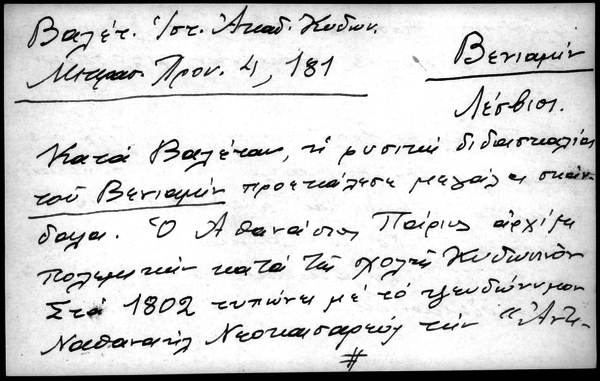 Βαλέτ. Ἱστ. Ἀκαδ. Κυδων.
Μικρασ. Χρον. 4, 181
Βενιαμὶν
Λέσβιος.
Κατὰ Βαλέταν, ἡ φυσικὴ διδασκαλία
τοῦ Βενιαμὶν προεκάλεσε μεγάλα σκάν-
δαλα. Ὁ Ἀθανάσιος Πάριος ἀρχίζει
πολεμικὴν κατὰ τῆς σχολῆς Κυδωνιῶν
Στὰ 1802 τυπώνει μὲ τὸ ψευδώνυμον
Ναθαναὴλ Νεοκαισαρεὺς τὴν "Ἀντι-
#